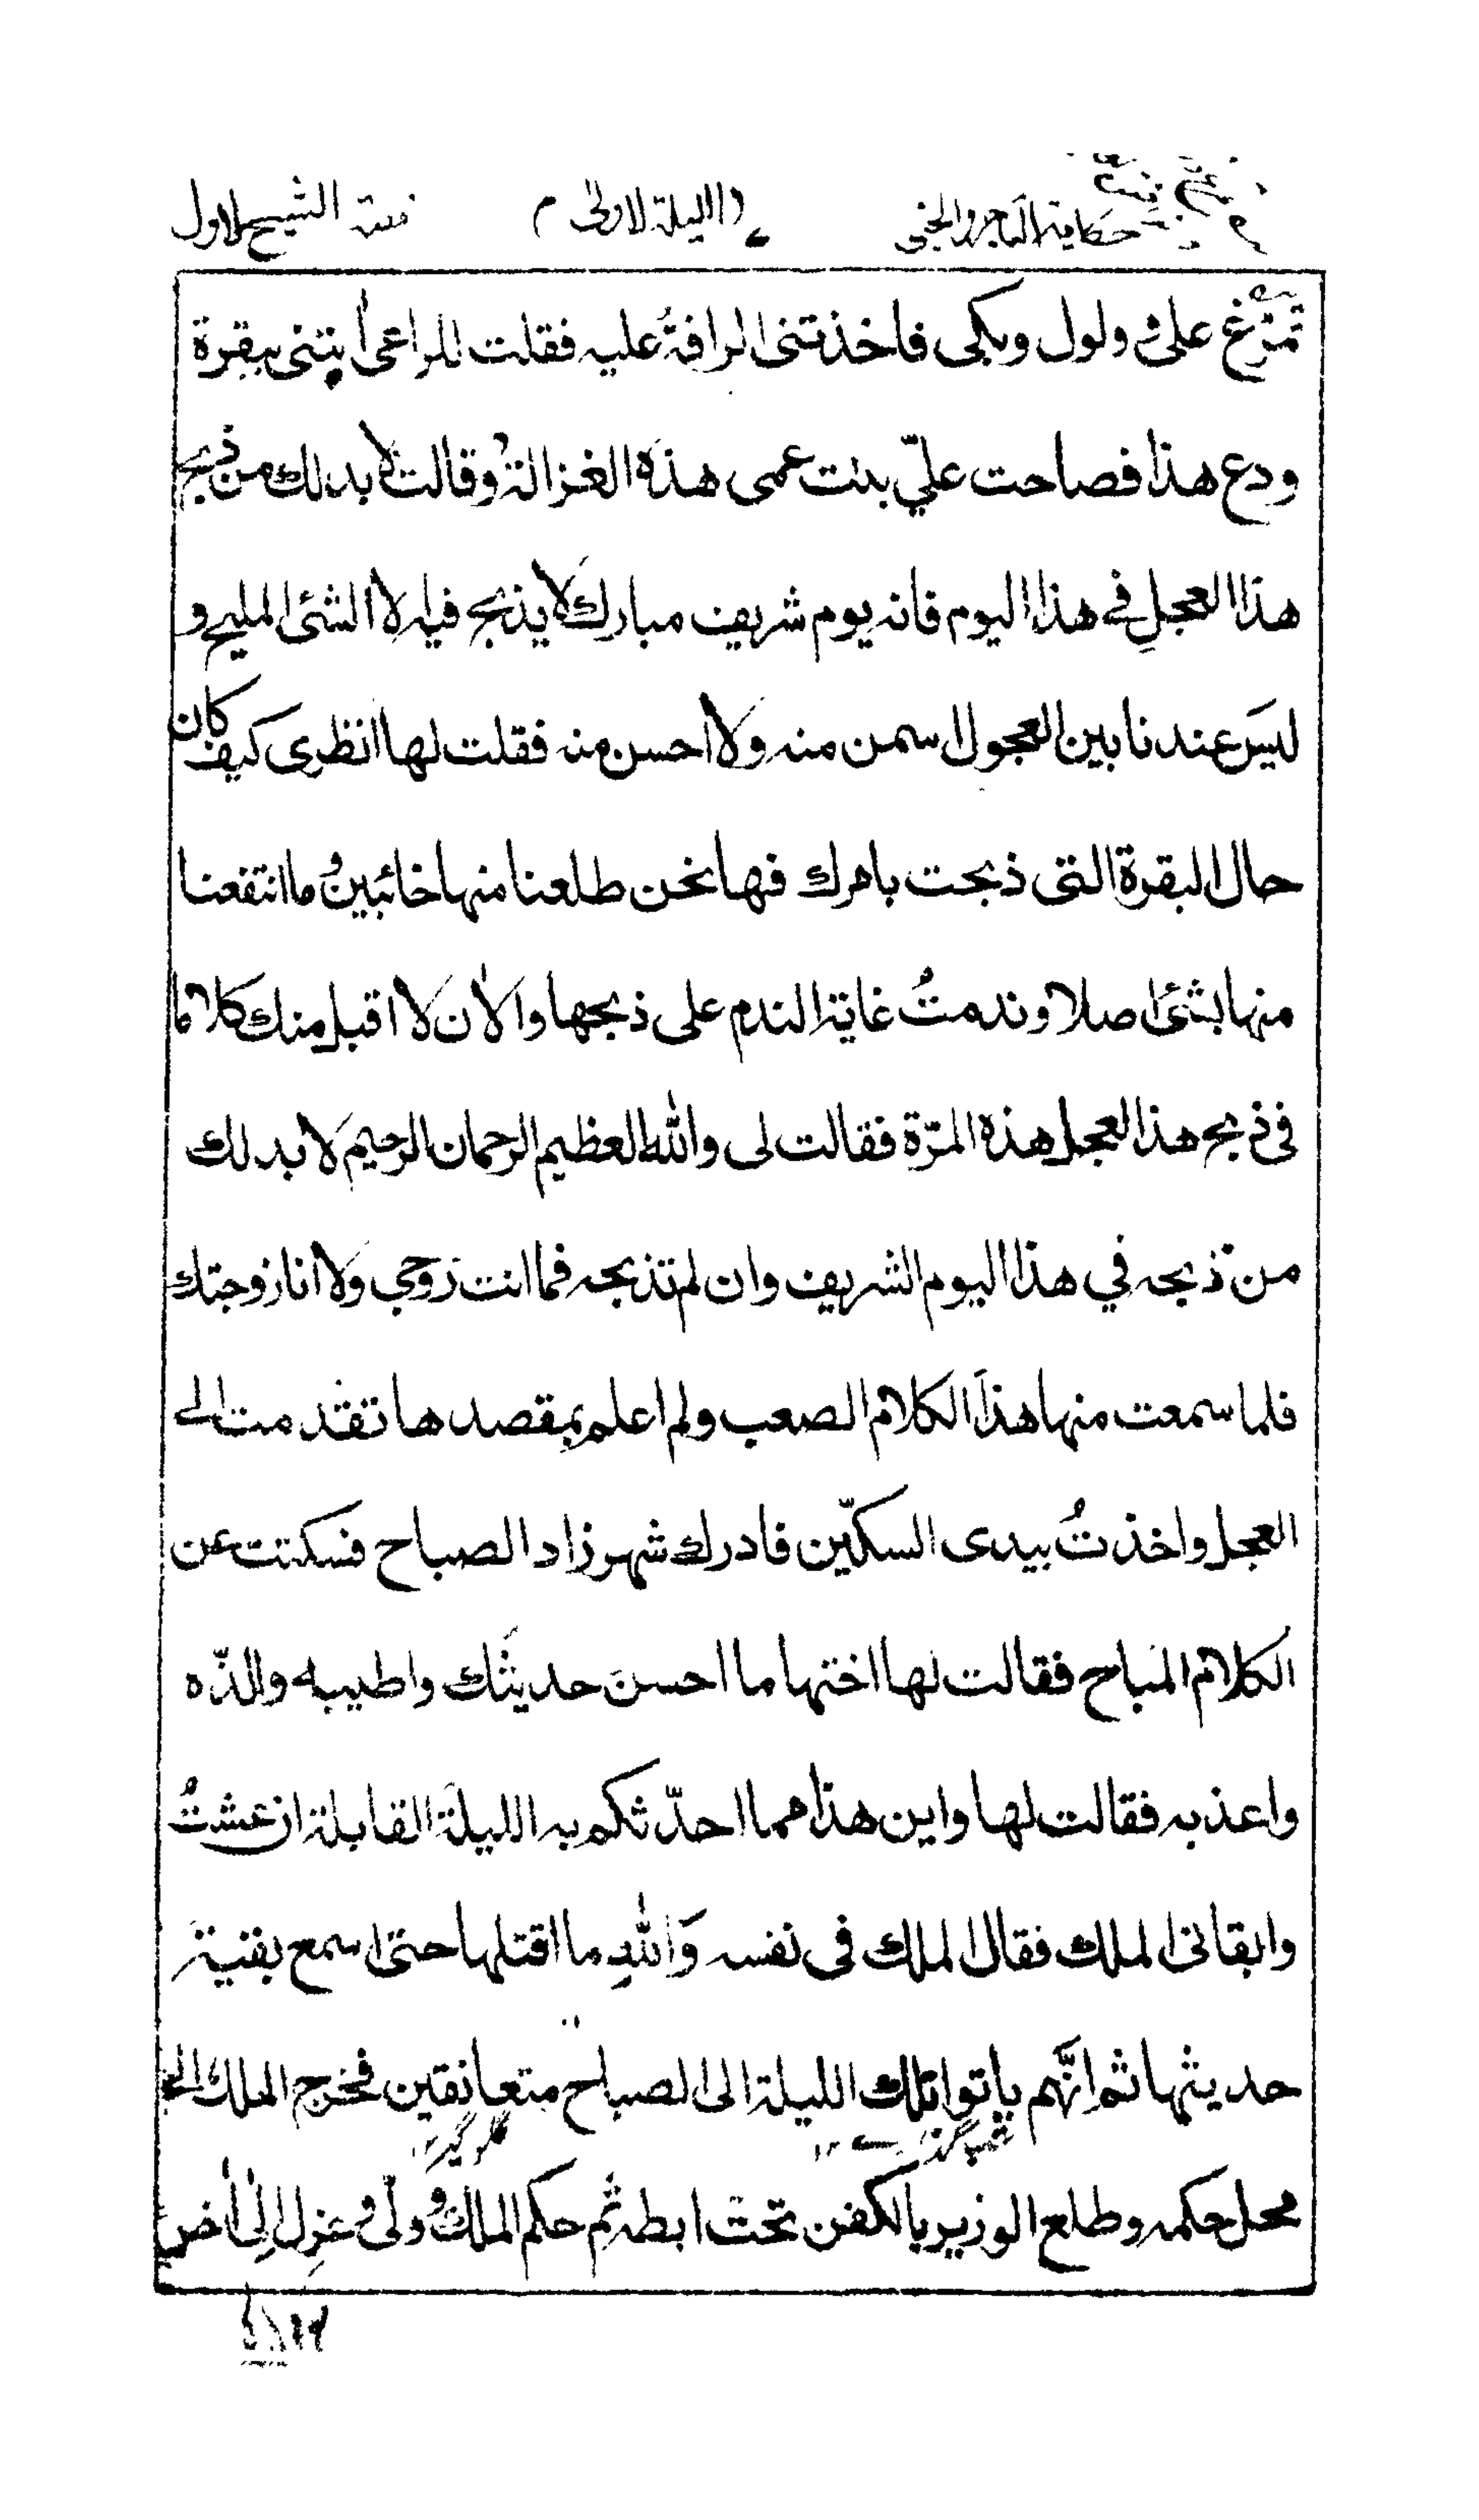 حكاية التاجر والجني (الليلة الاولى) قصة الشيخ الاول
تمرّغ علىّ وولول وبكى فاخذتنى الرافةُ عليه فقلت للراعى ايتنى ببقرة
ودع هذا فصاحت عليّ بنت عمى هذه الغزالةُ وقالت لا بد لك من ذبح
هذا العجلِ في هذا اليوم فانه يوم شريف مبارك لا يذبح فيه الا الشئ المليح و
ليسَ عندنا بين العجول اسمن منه ولا احسن منه فقلت لها انظرى كيف كان
حال البقرة التى ذبحت بامرك فها نحن طلعنا منها خائبين وما انتفعنا
منها بشئ اصلا وندمتُ غاية الندم على ذبحها والان لا اقبل منك كلاما
فى ذبح هذا العجل هذه المرّة فقالت لى والله العظيم الرحمان الرحيم لا بد لك
من ذبحه في هذا اليوم الشريف وان لم تذبحه فما انت زوجي ولا انا زوجتك
فلما سمعت منها هذا الكلام الصعب ولم اعلم بمقصدها تقدمت الى
العجل واخذتُ بيدى السكّين فادرك شهرزاد الصباح فسكتت عن
الكلام المباح فقالت لها اختها ما احسنَ حديثَك واطيبه والذّه
واعذبه فقالت لها واين هذا مما احدّثكم به الليلة القابلة ان عشتُ
وابقانى الملك فقال الملك فى نفسه وَاللهِ ما اقتلها حتى اسمع بقية
حديثها ثم انّهم باتوا تلك الليلة الى الصباح متعانقين فخرج الملك الى
محل حكمه وطلع الوزير بالكفن تحت ابطه ثم حكم الملك وولّى وعزل الى اخر